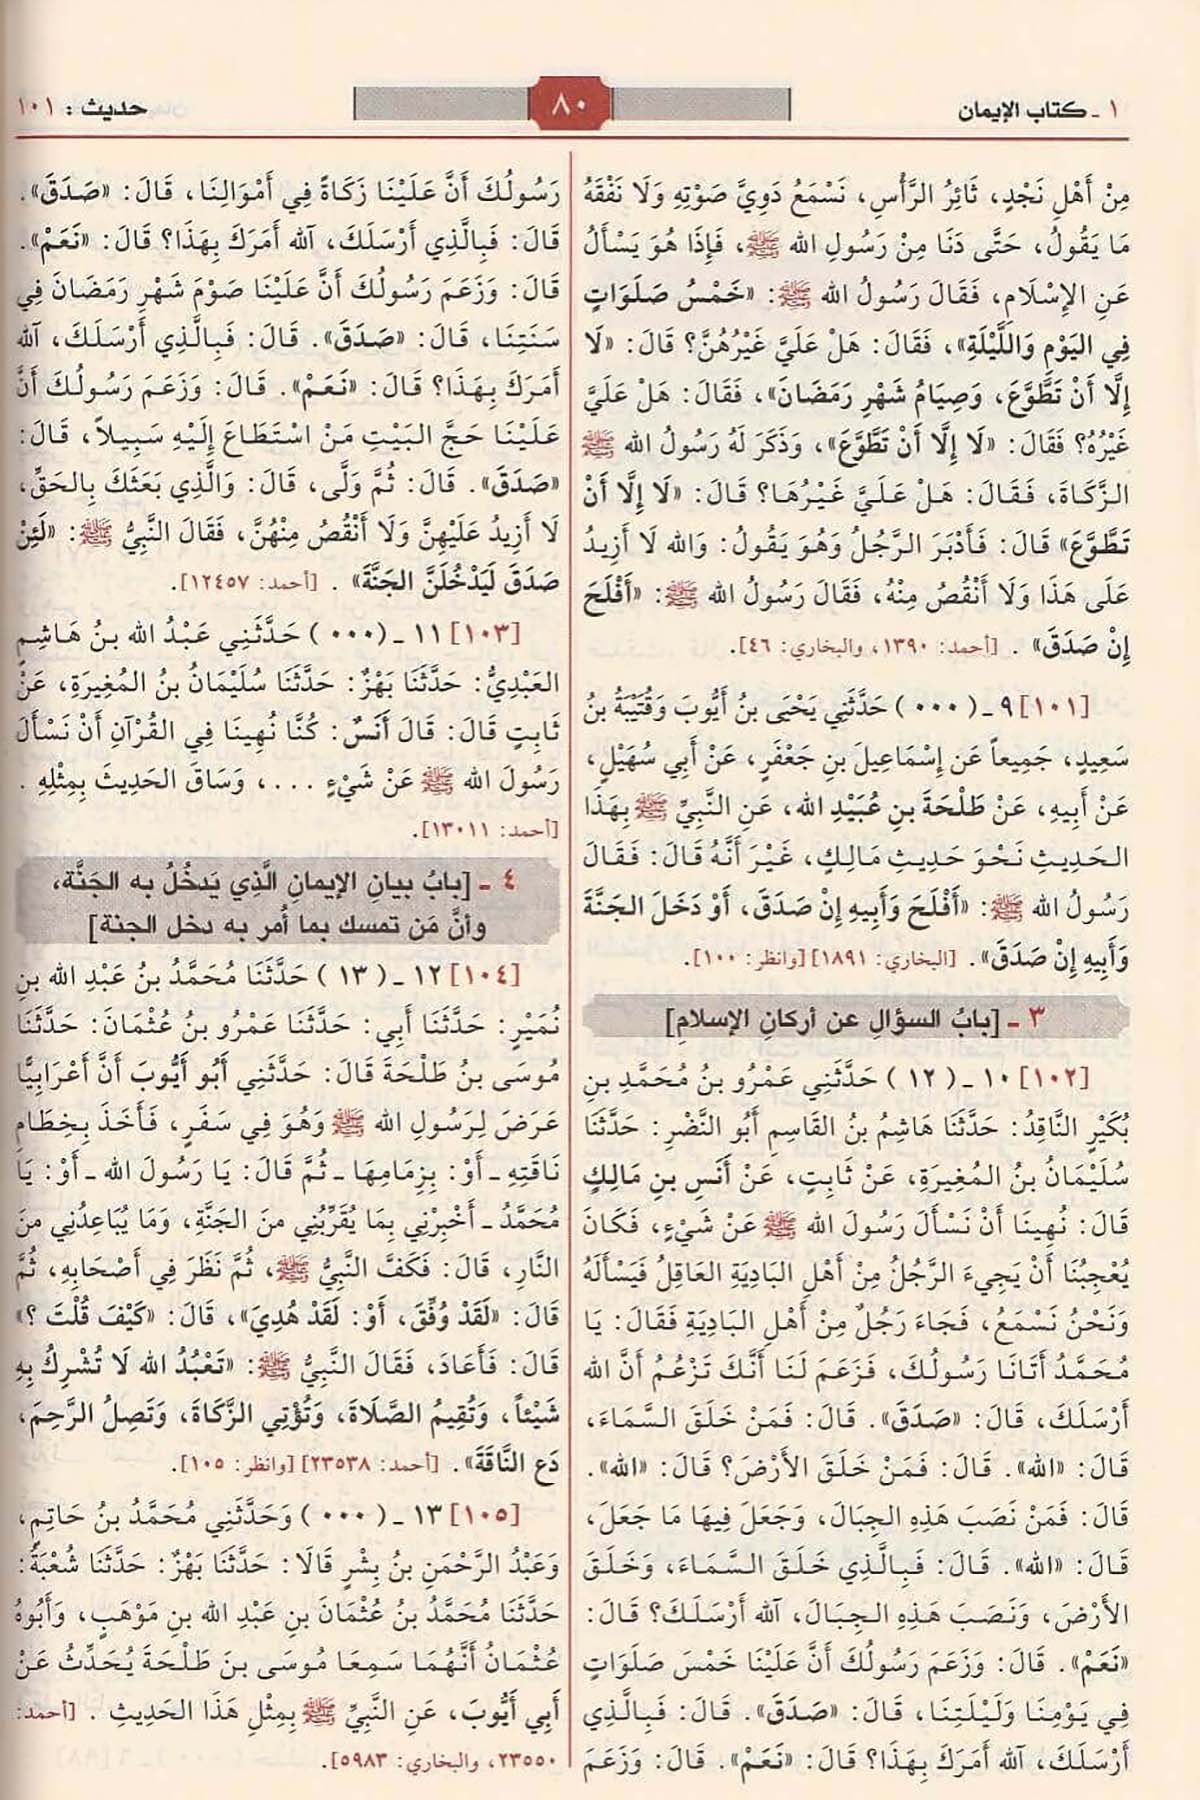 ١ - كتاب الإيمان
٨٠
حديث : ١٠١
مِنْ أَهْلِ نَجْدٍ، ثَائِرُ الرَّأْسِ، نَسْمَعُ دَوِيَّ صَوْتِهِ وَلَا نَفْقَهُ
مَا يَقُولُ، حَتَّى دَنَا مِنْ رَسُولِ الله ﷺ، فَإِذَا هُوَ يَسْأَلُ
عَنِ الإِسْلَامِ، فَقَالَ رَسُولُ الله ﷺ: «خَمْسُ صَلَوَاتٍ
فِي اليَوْمِ وَاللَّيْلَةِ»، فَقَالَ: هَلْ عَلَيَّ غَيْرُهُنَّ؟ قَالَ: «لَا
إِلَّا أَنْ تَطَّوَّعَ، وَصِيَامُ شَهْرِ رَمَضَانَ»، فَقَالَ: هَلْ عَلَيَّ
غَيْرُهُ؟ فَقَالَ: «لَا إِلَّا أَنْ تَطَّوَّعَ»، وَذَكَرَ لَهُ رَسُولُ الله ﷺ
الزَّكَاةَ، فَقَالَ: هَلْ عَلَيَّ غَيْرُهَا؟ قَالَ: «لَا إِلَّا أَنْ
تَطَّوَّعَ» قَالَ: فَأَدْبَرَ الرَّجُلُ وَهُوَ يَقُولُ: وَالله لَا أَزِيدُ
عَلَى هَذَا وَلَا أَنْقُصُ مِنْهُ، فَقَالَ رَسُولُ الله ﷺ: «أَفْلَحَ
إِنْ صَدَقَ» . [أحمد: ١٣٩٠، والبخاري: ٤٦].
[١٠١] ٩ - ( ٠٠٠ ) حَدَّثَنِي يَحْيَى بنُ أَيُّوبَ وَقُتَيْبَةُ بنُ
سَعِيدٍ، جَمِيعاً عَن إِسْمَاعِيلَ بنِ جَعْفَرٍ، عَنْ أَبِي سُهَيْلٍ،
عَنْ أَبِيهِ، عَنْ طَلْحَةَ بنِ عُبَيْدِ الله، عَنِ النَّبِيِّ ﷺ بِهَذَا
الحَدِيثِ نَحْوَ حَدِيثِ مَالِكٍ، غَيْرَ أَنَّهُ قَالَ: فَقَالَ
رَسُولُ الله ﷺ: «أَفْلَحَ وَأَبِيهِ إِنْ صَدَقَ، أَوْ دَخَلَ الجَنَّةَ
وَأَبِيهِ إِنْ صَدَقَ». [البخاري: ١٨٩١] [وانظر: ١٠٠].
٣ - [بابُ السؤالِ عن أركانِ الإسلامِ]
[١٠٢] ١٠ - ( ١٢ ) حَدَّثَنِي عَمْرُو بنُ مُحَمَّدِ بنِ
بُكَيْرٍ النَّاقِدُ: حَدَّثَنَا هَاشِمُ بنُ القَاسِمِ أَبُو النَّضْرِ: حَدَّثَنَا
سُلَيْمَانُ بنُ المُغِيرَةِ، عَنْ ثَابِتٍ، عَنْ أَنَسِ بنِ مَالِكٍ
قَالَ: نُهِينَا أَنْ نَسْأَلَ رَسُولَ الله ﷺ عَنْ شَيْءٍ، فَكَانَ
يُعْجِبُنَا أَنْ يَجِيءَ الرَّجُلُ مِنْ أَهْلِ البَادِيَةِ العَاقِلُ فَيَسْأَلَهُ
وَنَحْنُ نَسْمَعُ، فَجَاءَ رَجُلٌ مِنْ أَهْلِ البَادِيَةِ فَقَالَ: يَا
مُحَمَّدُ أَتَانَا رَسُولُكَ، فَزَعَمَ لَنَا أَنَّكَ تَزْعُمُ أَنَّ الله
أَرْسَلَكَ، قَالَ: «صَدَقَ». قَالَ: فَمَنْ خَلَقَ السَّمَاءَ،
قَالَ: «الله». قَالَ: فَمَنْ خَلَقَ الأَرْضَ؟ قَالَ: «الله».
قَالَ: فَمَنْ نَصَبَ هَذِهِ الجِبَالَ، وَجَعَلَ فِيهَا مَا جَعَلَ،
قَالَ: «الله». قَالَ: فَبِالَّذِي خَلَقَ السَّمَاءَ، وَخَلَقَ
الأَرْضَ، وَنَصَبَ هَذِهِ الجِبَالَ، آلله أَرْسَلَكَ؟ قَالَ:
«نَعَمْ». قَالَ: وَزَعَمَ رَسُولُكَ أَنَّ عَلَيْنَا خَمْسَ صَلَوَاتٍ
فِي يَوْمِنَا وَلَيْلَتِنَا، قَالَ: «صَدَقَ». قَالَ: فَبِالَّذِي
أَرْسَلَكَ، آلله أَمَرَكَ بِهَذَا؟ قَالَ: «نَعَمْ». قَالَ: وَزَعَمَ
رَسُولُكَ أَنَّ عَلَيْنَا زَكَاةً فِي أَمْوَالِنَا، قَالَ: «صَدَقَ».
قَالَ: فَبِالَّذِي أَرْسَلَكَ، آلله أَمَرَكَ بِهَذَا؟ قَالَ: «نَعَمْ».
قَالَ: وَزَعَمَ رَسُولُكَ أَنَّ عَلَيْنَا صَوْمَ شَهْرِ رَمَضَانَ فِي
سَنَتِنَا، قَالَ: «صَدَقَ». قَالَ: فَبِالَّذِي أَرْسَلَكَ، آلله
أَمَرَكَ بِهَذَا؟ قَالَ: «نَعَمْ». قَالَ: وَزَعَمَ رَسُولُكَ أَنَّ
عَلَيْنَا حَجَّ البَيْتِ مَنْ اسْتَطَاعَ إِلَيْهِ سَبِيلاً، قَالَ:
«صَدَقَ». قَالَ: ثُمَّ وَلَّى، قَالَ: وَالَّذِي بَعَثَكَ بِالحَقِّ،
لَا أَزِيدُ عَلَيْهِنَّ وَلَا أَنْقُصُ مِنْهُنَّ، فَقَالَ النَّبِيُّ ﷺ: «لَئِنْ
صَدَقَ لَيَدْخُلَنَّ الجَنَّةَ» . [أحمد: ١٢٤٥٧].
[١٠٣] ١١ - ( ٠٠٠ ) حَدَّثَنِي عَبْدُ الله بنُ هَاشِمٍ
العَبْدِيُّ: حَدَّثَنَا بَهْزٌ: حَدَّثَنَا سُلَيْمَانُ بنُ المُغِيرَةِ، عَنْ
ثَابِتٍ قَالَ: قَالَ أَنَسٌ: كُنَّا نُهِينَا فِي القُرْآنِ أَنْ نَسْأَلَ
رَسُولَ الله ﷺ عَنْ شَيْءٍ ...، وَسَاقَ الحَدِيثَ بِمِثْلِهِ .
[أحمد: ١٣٠١١].
٤ - [بابُ بيانِ الإيمانِ الَّذِي يَدخُلُ به الجَنَّة،
وأنَّ مَن تمسك بما أُمر به دخل الجنة]
[١٠٤] ١٢ - ( ١٣ ) حَدَّثَنَا مُحَمَّدُ بنُ عَبْدِ الله بنِ
نُمَيْرٍ: حَدَّثَنَا أَبِي: حَدَّثَنَا عَمْرُو بنُ عُثْمَانَ: حَدَّثَنَا
مُوسَى بنُ طَلْحَةَ قَالَ: حَدَّثَنِي أَبُو أَيُّوبَ أَنَّ أَعْرَابِيًّا
عَرَضَ لِرَسُولِ الله ﷺ وَهُوَ فِي سَفَرٍ، فَأَخَذَ بِخِطَامِ
نَاقَتِهِ - أَوْ: بِزِمَامِهَا - ثُمَّ قَالَ: يَا رَسُولَ الله - أَوْ: يَا
مُحَمَّدُ - أَخْبِرْنِي بِمَا يُقَرِّبُنِي مِنَ الجَنَّةِ، وَمَا يُبَاعِدُنِي مِنَ
النَّارِ، قَالَ: فَكَفَّ النَّبِيُّ ﷺ، ثُمَّ نَظَرَ فِي أَصْحَابِهِ، ثُمَّ
قَالَ: «لَقَدْ وُفِّقَ، أَوْ: لَقَدْ هُدِيَ»، قَالَ: «كَيْفَ قُلْتَ ؟»
قَالَ: فَأَعَادَ، فَقَالَ النَّبِيُّ ﷺ: «تَعْبُدُ الله لَا تُشْرِكُ بِهِ
شَيْئاً، وَتُقِيمُ الصَّلَاةَ، وَتُؤْتِي الزَّكَاةَ، وَتَصِلُ الرَّحِمَ،
دَعِ النَّاقَةَ». [أحمد: ٢٣٥٣٨] [وانظر: ١٠٥].
[١٠٥] ١٣ - ( ٠٠٠ ) وَحَدَّثَنِي مُحَمَّدُ بنُ حَاتِمٍ،
وَعَبْدُ الرَّحْمَنِ بنُ بِشْرٍ قَالَا: حَدَّثَنَا بَهْزٌ: حَدَّثَنَا شُعْبَةُ:
حَدَّثَنَا مُحَمَّدُ بنُ عُثْمَانَ بنِ عَبْدِ الله بنِ مَوْهَبٍ، وَأَبُوهُ
عُثْمَانُ أَنَّهُمَا سَمِعَا مُوسَى بنَ طَلْحَةَ يُحَدِّثُ عَنْ
أَبِي أَيُّوبَ، عَنِ النَّبِيِّ ﷺ بِمِثْلِ هَذَا الحَدِيثِ . [أحمد:
٢٣٥٥٠، والبخاري: ٥٩٨٣].